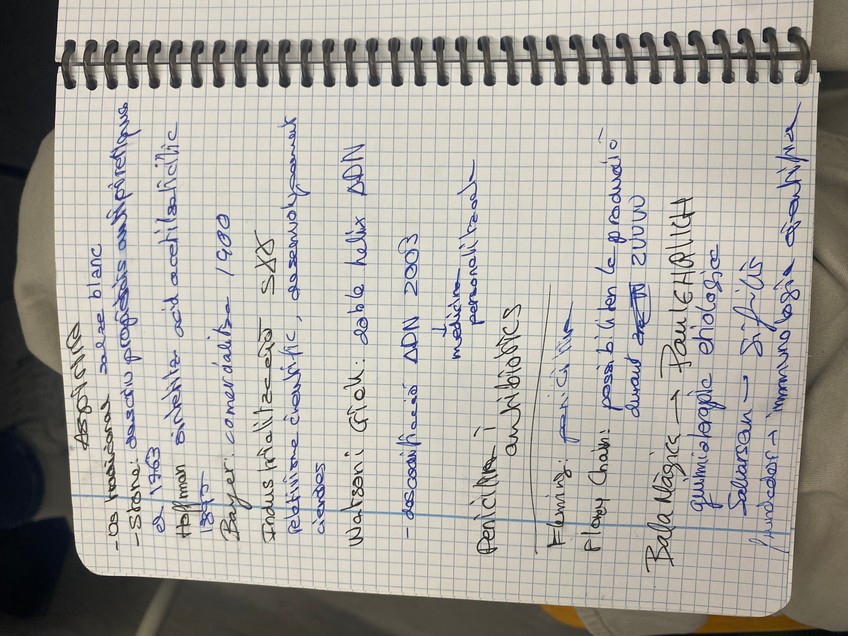 Aspirina
- Ús tradicional salze blanc
- Stone: descriu propietats antipirètiques
el 1763
Hoffman sintetitza acid acetilsalicílic
1897
Bayer: comercialitza 1900
Industrialització SXX
Positivisme científic, desenvolupament
ciències
Watson i Crick: doble hèlix ADN
- descodificació ADN 2003
↓
medicina
personalitzada
Penicilina i
antibiòtics
Fleming: penicilina
Florey Chain: possibiliten la producció
durant 2000
Bala Màgica → Paul EHRLICH
quimioteràpia etiològica
Salvarsan → Sífilis
fundador → immunologia científica